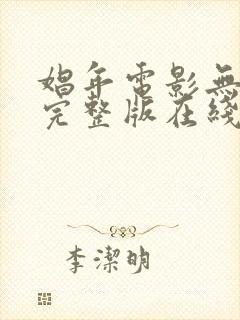 娼年電影無
完整版在綫
李潔明